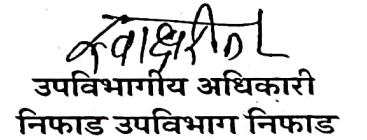 स्वाक्षरीत/-
उपविभागीय अधिकारी
निफाड उपविभाग निफाड